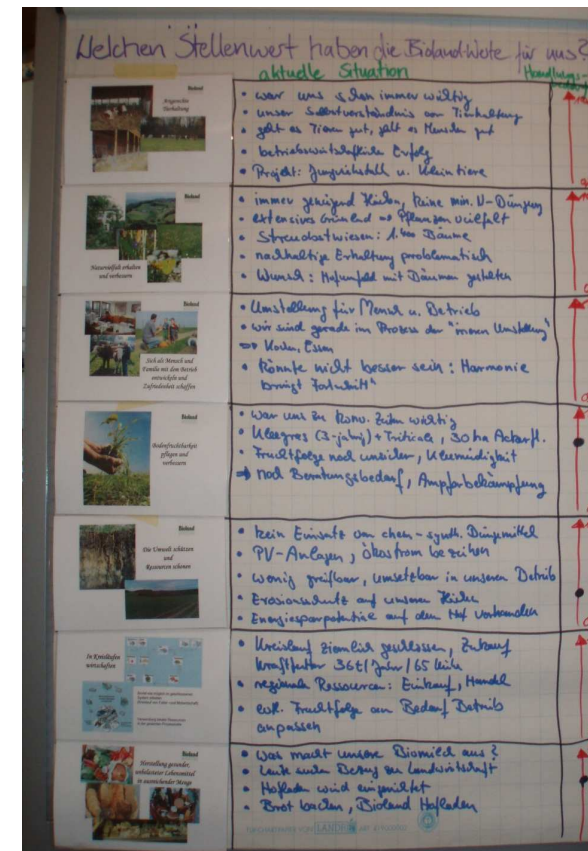 Welchen Stellenwert haben die Bioland-Werte für uns?
aktuelle Situation
Bioland
Artgerechte
Tierhaltung
• war uns schon immer wichtig
• unser Selbstverständnis von Tierhaltung
• geht es Tieren gut, geht es Menschen gut
• betriebswirtschaftlicher Erfolg
• Projekt: Jungviehstall u. Kleintiere
Bioland
Naturvielfalt erhalten
und verbessern
• immer genügend Hecken, keine min. N-Düngung
• extensives Grünland => Pflanzenvielfalt
• Streuobstwiesen: Bäume
• nachhaltige Erhaltung problematisch
• Wunsch: Hofumfeld mit Bäumen gestalten
Bioland
Sich als Mensch und
Familie mit dem Betrieb
entwickeln und
Zufriedenheit schaffen
• Umstellung für Mensch u. Betrieb
• wir sind gerade im Prozess der "inneren Umstellung"
=> Kochen, Essen
• könnte nicht besser sein: Harmonie
bringt Fortschritt"
Bioland
Bodenfruchtbarkeit
pflegen und
verbessern
• war uns zu konv. Zeiten wichtig
• Kleegras (3-jährig) + Triticale, 30 ha Ackerfl.
• Fruchtfolge noch unsicher, Kleemüdigkeit
=> noch Beratungsbedarf, Ampferbekämpfung
Bioland
Die Umwelt schützen
und
Ressourcen schonen
• kein Einsatz von chem.-synth. Düngemittel
• PV-Anlagen, Ökostrom beziehen
• wenig greifbar, umsetzbar in unseren Betrieb
• Erosionsschutz auf unseren
• Energiesparpotentiale auf dem Hof vorhanden
In Kreisläufen
wirtschaften
• Kreislauf ziemlich geschlossen, Zukauf
Kraftfutter 36t/Jahr/65 Kühe
• regionale Ressourcen: Einkauf, Handel
• evtl. Fruchtfolge an Bedarf Betrieb
anpassen
Bioland
Herstellung gesunder,
unbelasteter Lebensmittel
in ausreichender Menge
• Was macht unsere Biomilch aus?
• Leute Bezug zu Landwirtschaft
• Hofladen wird eingerichtet
• Brot backen, Bioland Hofladen